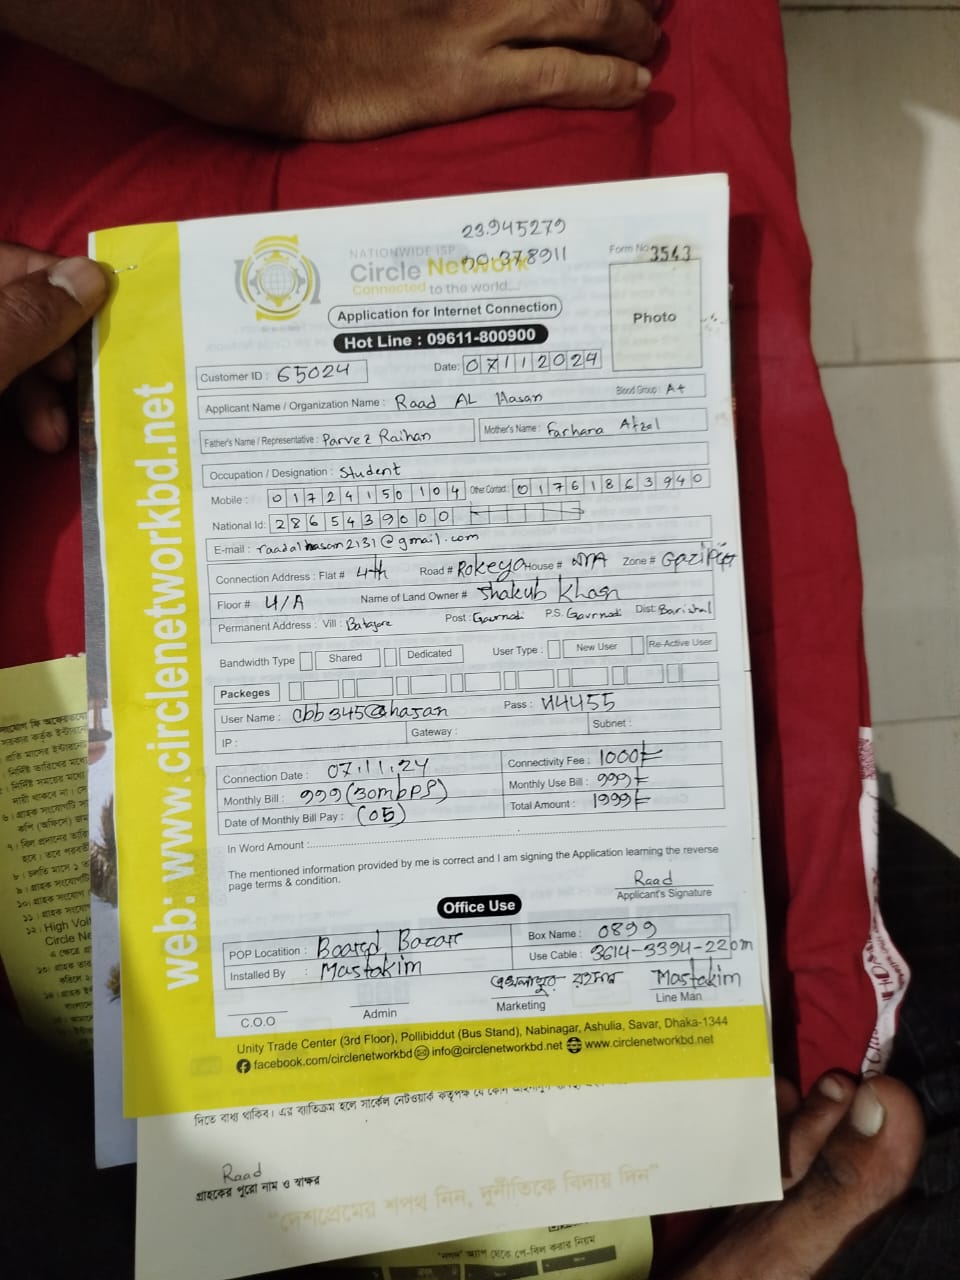 23.945279
90.378911
NATIONWIDE ISP
Circle Network
Connected to the world...
Form No 3543
Photo
Application for Internet Connection
Hot Line : 09611-800900
Customer ID : 65024
Date: 07112024
Applicant Name / Organization Name : Raad AL Hasan
Blood Group : A+
Father's Name / Representative : Parvez Raihan
Mother's Name : Farhana Afzal
Occupation / Designation : Student
Mobile : 01724150104 Other Contact : 01761863940
National Id: 2865439000
E-mail : raadalhasan2131@gmail.com
Connection Address : Flat # 4th Road # Rokeya House # N/A Zone # Gazipur
Floor # U/A Name of Land Owner # Shakub Khan
Permanent Address : Vill : Batajore Post : Gaurnadi P.S. Gaurnadi Dist: Barishal
Bandwidth Type Shared Dedicated User Type : New User Re-Active User
Packeges
User Name : cbb345@hasan Pass : 44455
IP : Gateway : Subnet :
Connection Date : 07.11.24 Connectivity Fee : 1000/=
Monthly Bill : 999 (30mbPS) Monthly Use Bill : 999/=
Date of Monthly Bill Pay : (05) Total Amount : 1999/=
In Word Amount :
The mentioned information provided by me is correct and I am signing the Application learning the reverse
page terms & condition.
Raad
Applicant's Signature
Office Use
POP Locatition : Board Bazar Box Name : 0899
Installed By : Mastakim Use Cable : 3614-3394-220m
Mastakim
C.O.O Admin Marketing Line Man
Unity Trade Center (3rd Floor), Pollibiddut (Bus Stand), Nabinagar, Ashulia, Savar, Dhaka-1344
facebook.com/circlenetworkbd info@circlenetworkbd.net www.circlenetworkbd.net
web: www.circlenetworkbd.net
দিতে বাধ্য থাকিব। এর ব্যতিক্রম হলে সার্কেল নেটওয়ার্ক কর্তৃপক্ষ যে কোন
Raad
গ্রাহকের পুরো নাম ও স্বাক্ষর
"দেশপ্রেমের শপথ নিন, দুর্নীতিকে বিদায় দিন"
"নগদ" অ্যাপ থেকে পে-বিল করার নিয়ম